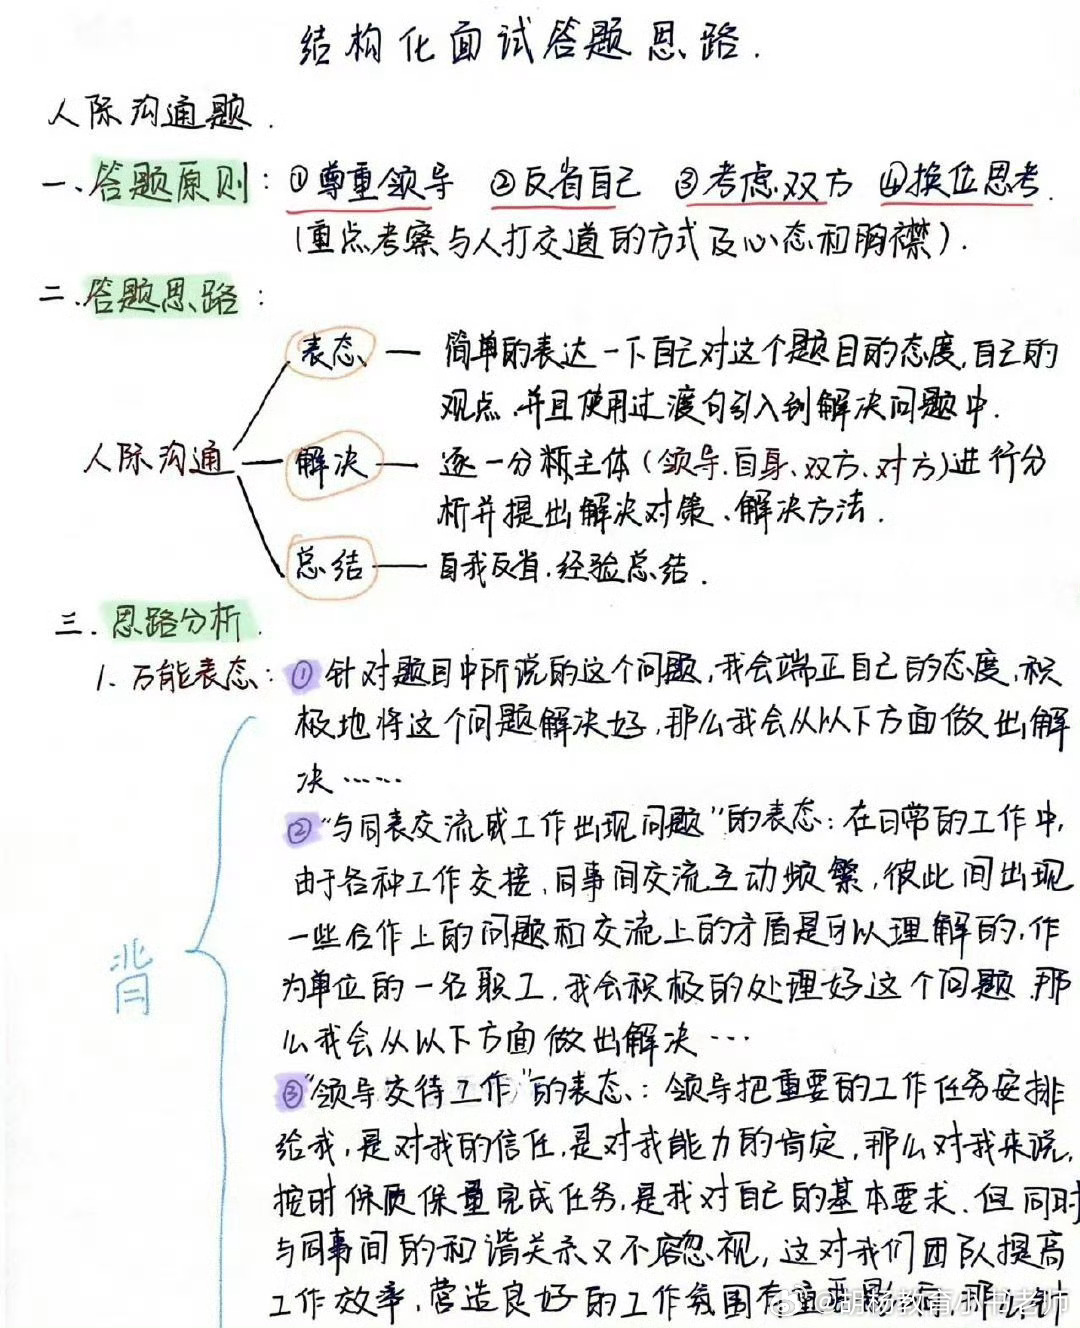 结构化面试答题思路.
人际沟通题.
一、答题原则: ①尊重领导 ②反省自己 ③考虑双方 ④换位思考.
(重点考察与人打交道的方式及心态和胸襟).
二、答题思路:
表态 — 简单的表达一下自己对这个题目的态度,自己的
观点,并且使用过渡句引入到解决问题中.
人际沟通 — 解决 — 逐一分析主体(领导.自身、双方、对方)进行分
析并提出解决对策、解决方法.
总结 — 自我反省.经验总结.
三. 思路分析.
1. 万能表态: ① 针对题目中所说的这个问题,我会端正自己的态度,积
极地将这个问题解决好,那么我会从以下方面做出解
决……
②"与同表交流或工作出现问题"的表态: 在日常的工作中,
由于各种工作交接、同事间交流互动频繁,彼此间出现
一些合作上的问题和交流上的矛盾是可以理解的,作
为单位的一名职工,我会积极的处理好这个问题,那
么我会从以下方面做出解决…
背
③"领导交待工作"的表态: 领导把重要的工作任务安排
给我,是对我的信任,是对我能力的肯定,那么对我来说,
按时保质保量完成任务,是我对自己的基本要求、但同时
与同事间的和谐关系又不容忽视,这对我们团队提高
工作效率,营造良好的工作氛围有重要影响,那么针
@胡杨教育小书老师